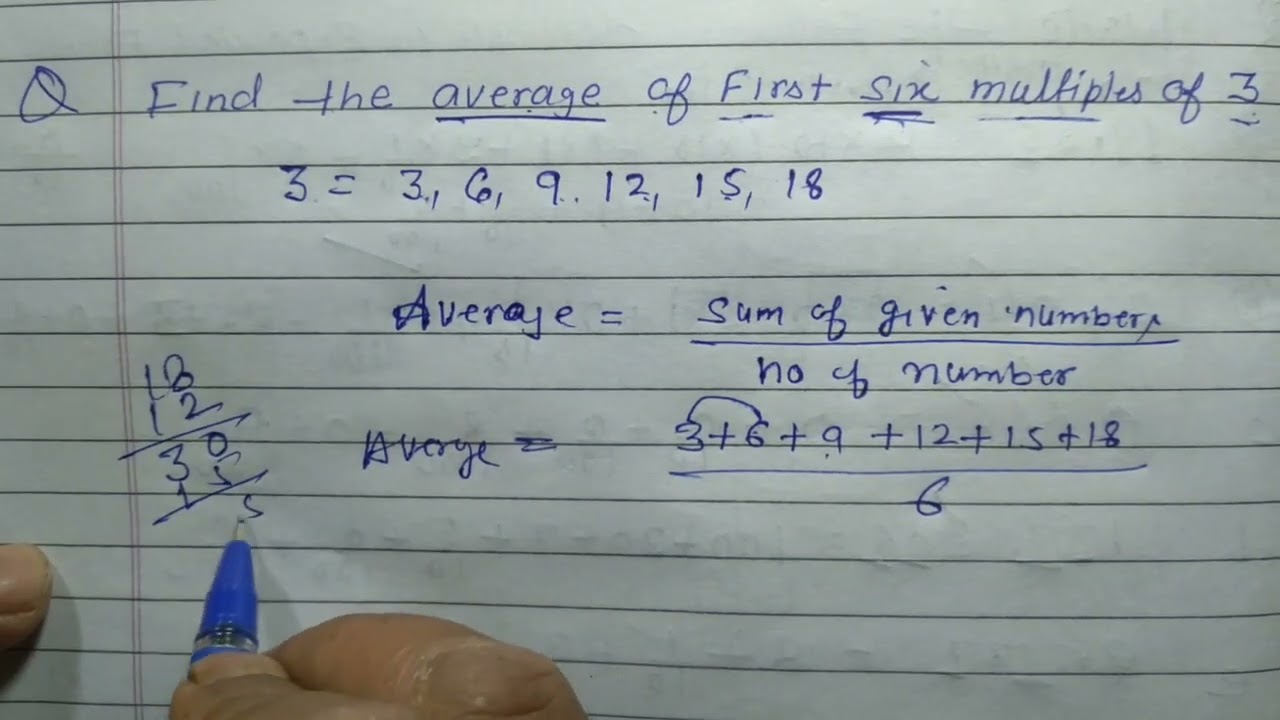 Q Find the average of First six multiples of 3
3 = 3, 6, 9. 12, 15, 18
Average = Sum of given numbers
no of number
Average = 3+6+9+12+15+18
6
18
12
30
15
5